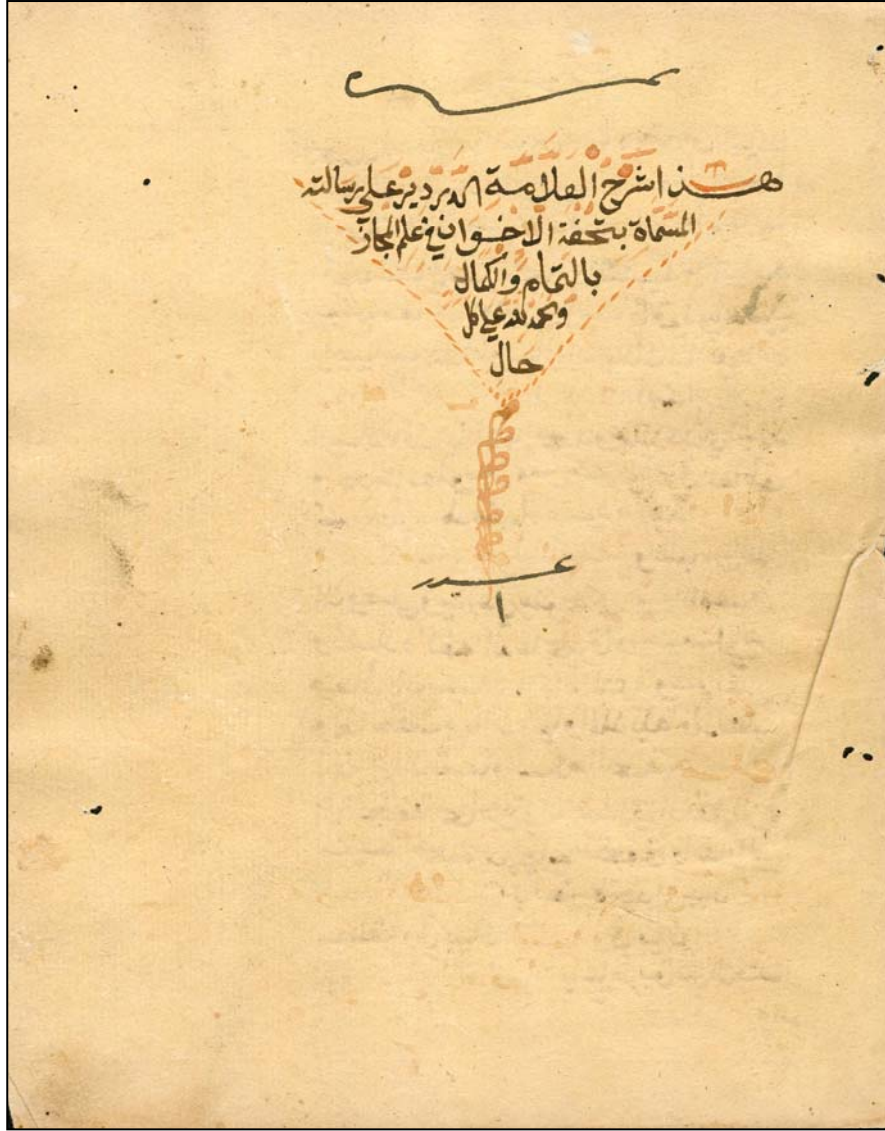 هذا شرح العلامة الدردير على رسالته
المسماة بتحفة الاخوان في علم المجاز
بالتمام والكمال
والحمد لله على كل
حال
عدد
١